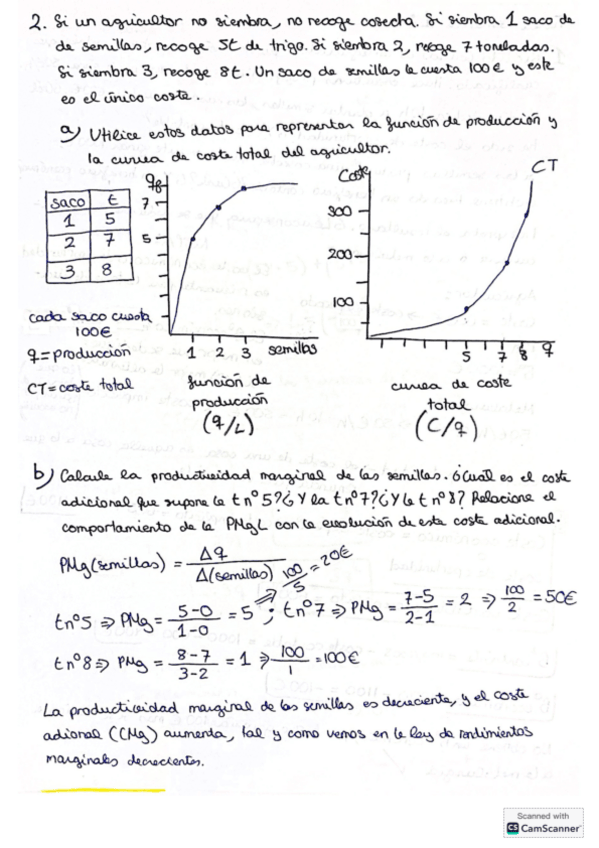 2. Si un agricultor no siembra, no recoge cosecha. Si siembra 1 saco de
de semillas, recoge 5t de trigo. Si siembra 2, recoge 7 toneladas.
Si siembra 3, recoge 8t. Un saco de semillas le cuesta 100€ y este
es el único coste.
a) Utilice estos datos para representar la función de producción y
la curva de coste total del agricultor.
saco t
1 5
2 7
3 8
cada saco cuesta
100€
q = producción
CT = coste total
7
5
1 2 3 semillas
función de
producción
(q/L)
Coste
CT
300
200
100
5 7 8 q
curva de coste
total
(C/q)
b) Calcule la productividad marginal de las semillas. ¿Cuál es el coste
adicional que supone la t nº5?¿Y la t nº7?¿Y la t nº8? Relacione el
comportamiento de la PMgL con la evolución de este coste adicional.
PMg(semillas) = Δq / Δ(semillas)
⇒ 100/5 = 20€
t nº5 ⇒ PMg = 5-0 / 1-0 = 5 ; t nº7 ⇒ PMg = 7-5 / 2-1 = 2 ⇒ 100/2 = 50€
t nº8 ⇒ PMg = 8-7 / 3-2 = 1 ⇒ 100/1 = 100€
La productividad marginal de las semillas es decreciente, y el coste
adional (CMg) aumenta, tal y como vemos en la ley de rendimientos
marginales decrecientes.
Scanned with
CS CamScanner